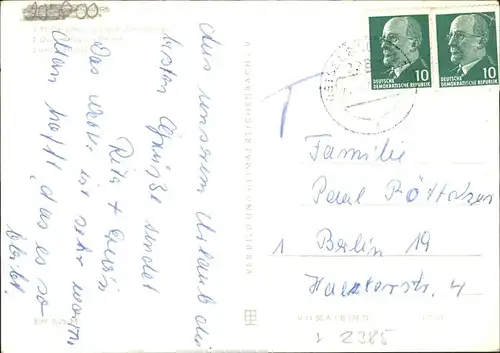 aus unserem Urlaub die
besten Grüße sendet
Rita +
Das Wetter ist sehr warm.
Man hofft, das es so
bleibt.
VERLAG BILD UND HEIMAT REICHENBACH i. V.
10
DEUTSCHE
DEMOKRATISCHE REPUBLIK
10
DEUTSCHE
DEMOKRATISCHE REPUBLIK
T
Familie
Paul
1 Berlin 19
4
2385